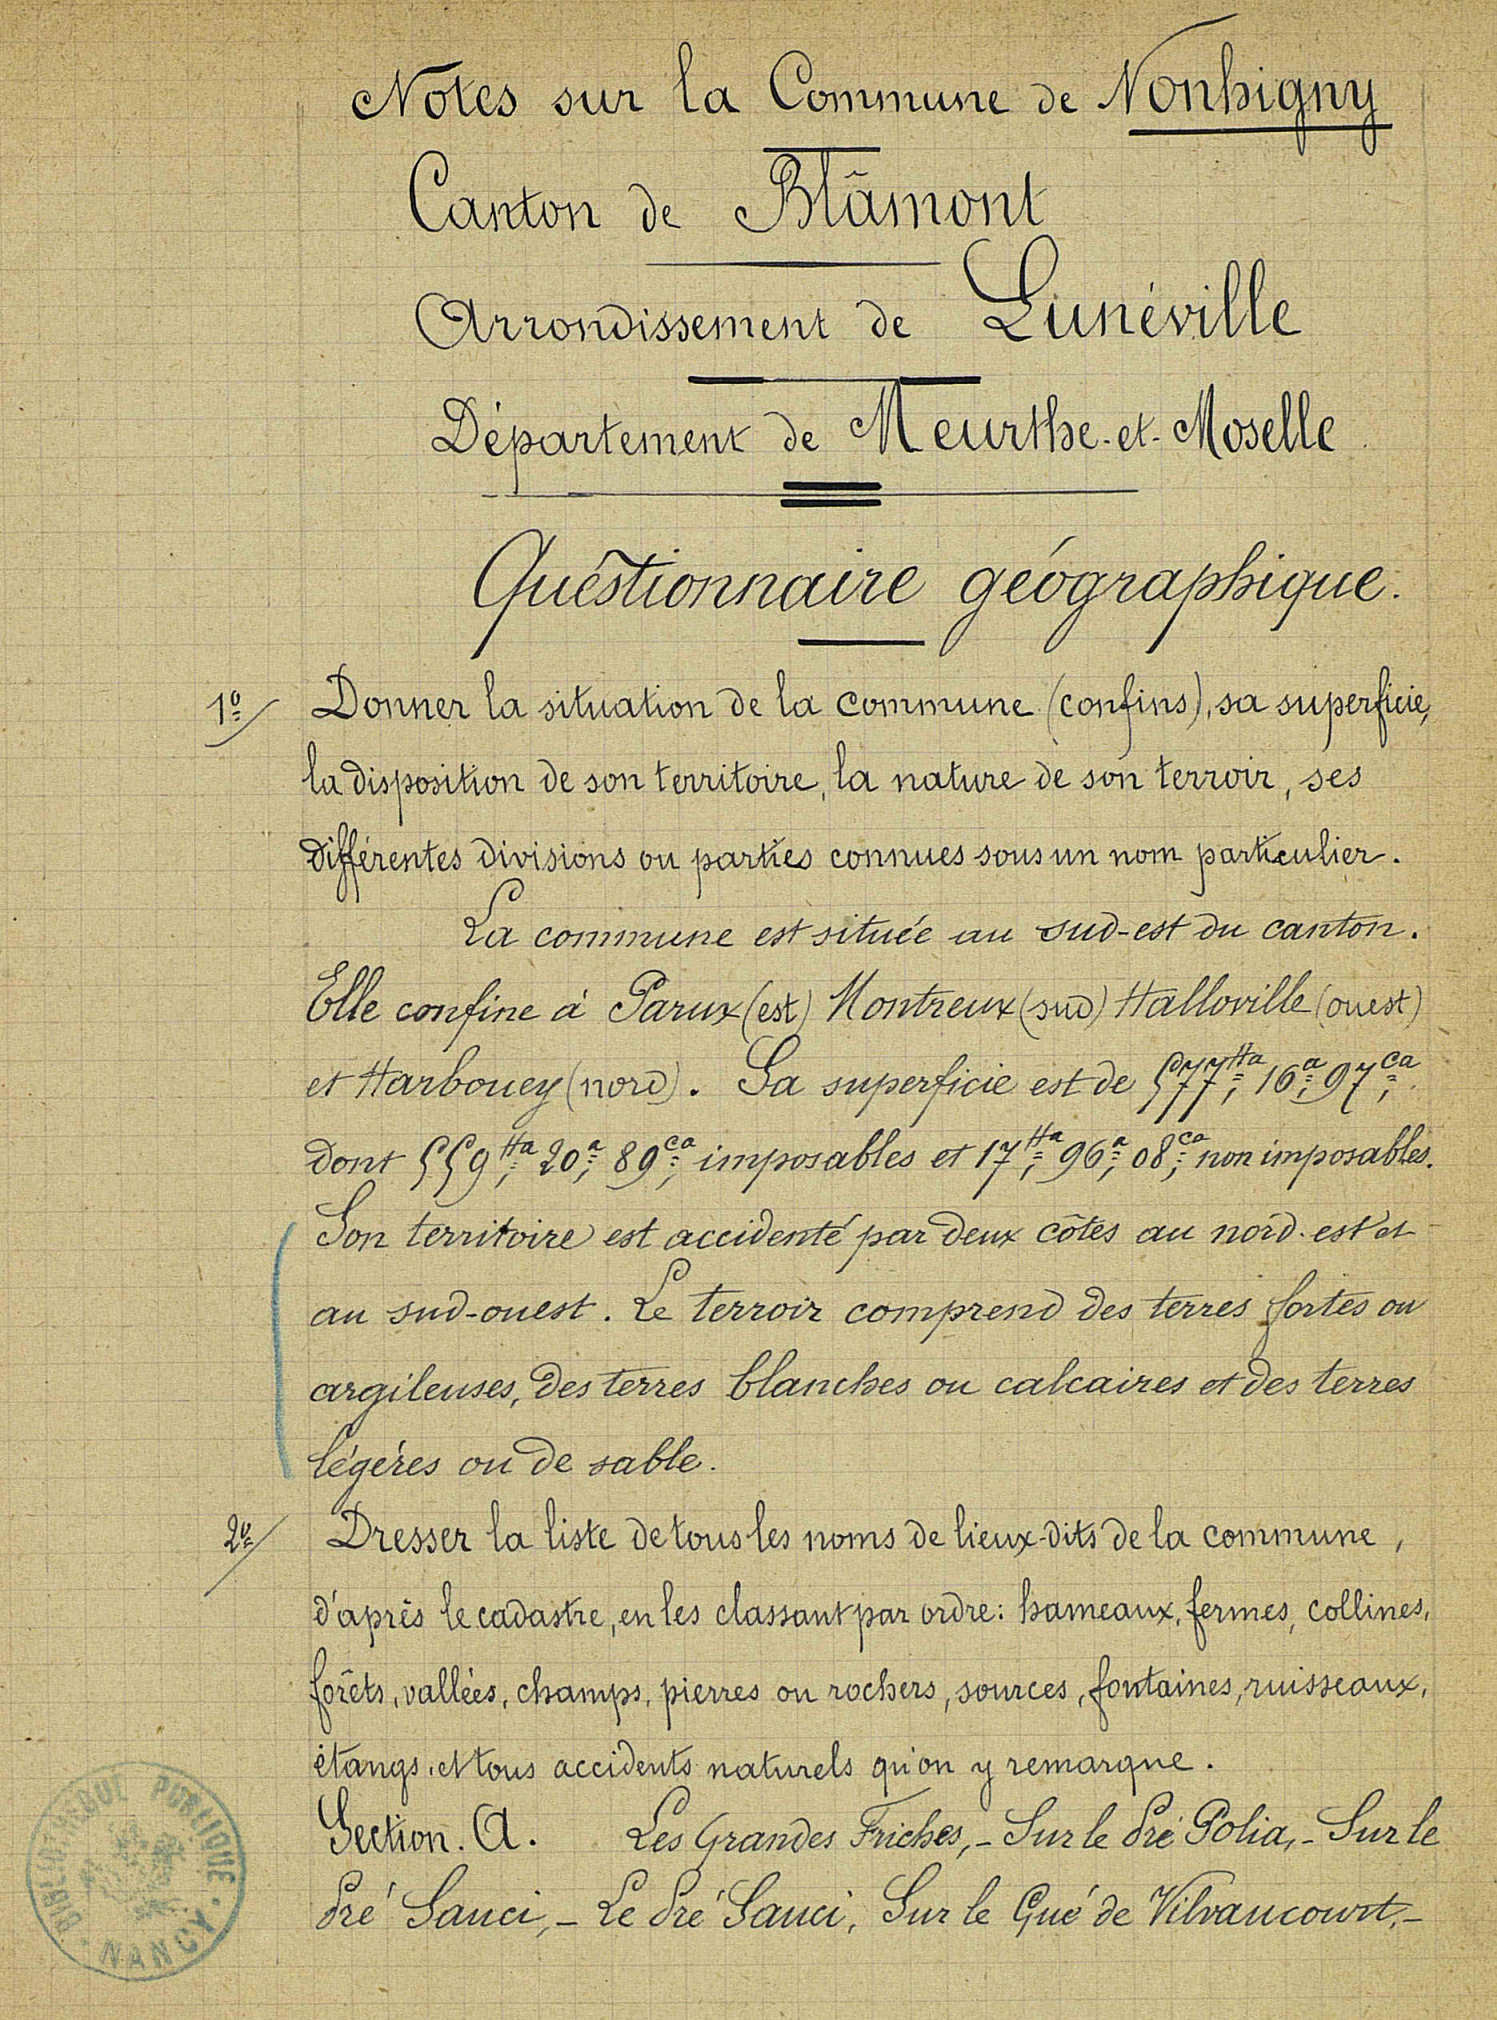 Notes sur la Commune de Nonhigny
Canton de Blâmont
Arrondissement de Lunéville
Département de Meurthe-et-Moselle
Questionnaire géographique.
1º/ Donner la situation de la commune (confins), sa superficie,
la disposition de son territoire, la nature de son terroir, ses
différentes divisions ou parties connues sous un nom particulier.
La commune est située au sud-est du canton.
Elle confine à Parux (est) Montreux (sud) Halloville (ouest)
et Harbouey (nord). Sa superficie est de 577 Ha, 16 a, 97 ca,
dont 559 Ha, 20 a, 89 ca, imposables et 17 Ha, 96 a, 08 ca, non imposables.
Son territoire est accidenté par deux côtes au nord-est et
au sud-ouest. Le terroir comprend des terres fortes ou
argileuses, des terres blanches ou calcaires et des terres
légères ou de sable.
2º/ Dresser la liste de tous les noms de lieux-dits de la commune,
d'après le cadastre, en les classant par ordre: hameaux, fermes, collines,
forêts, vallées, champs, pierres ou rochers, sources, fontaines, ruisseaux,
étangs, et tous accidents naturels qu'on y remarque.
Section. A. Les Grandes Friches, - Sur le Pré Polia, - Sur le
Pré Sauci, - Le Pré Sauci, Sur le Gué de Vilvaucourt, -
BIBLIOTHEQUE PUBLIQUE
NANCY